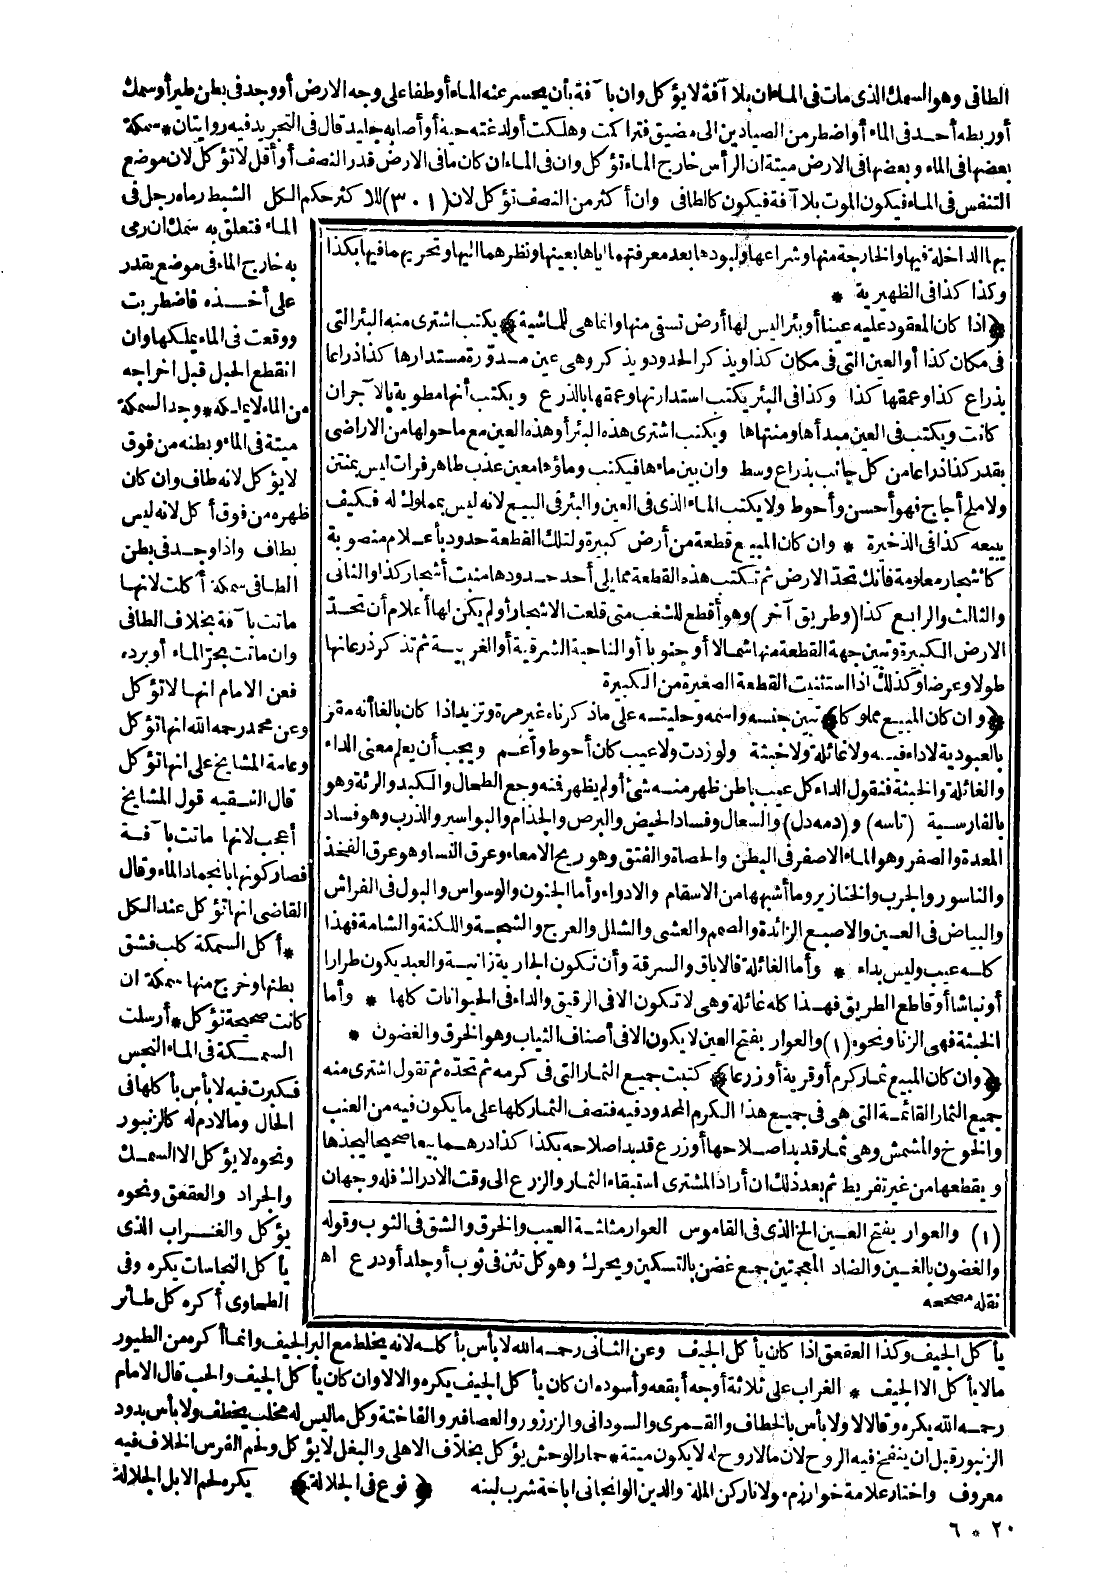 الطافى وهو السمك الذى مات فى الماء ان بلا آفة لا يؤكل وان با آفة بأن يحسر عنه الماء أو طفا على وجه الارض أو وجد فى بطن طير أو سمك
أو ربطه أحد فى الماء أو اضطر من الصيادين الى مضيق فتراكمت وهلكت أو لدغته حية أو أصابه حديد قال فى التجريد فيه روايتان * سمكة
بعضها فى الماء وبعضها فى الارض ميتة ان الرأس خارج الماء تؤكل وان فى الماء ان كان ما فى الارض قدر النصف أو أقل لا تؤكل لان موضع
التنفس فى الماء فيكون الموت بلا آفة فيكون كالطافى وان أكثر من النصف تؤكل لان (٣٠١) للاكثر حكم الكل الشبط رماه رجل فى
الماء فتعلق به سمك ان رمى
به خارج الماء فى موضع يقدر
على أخذه فاضطربت
ووقعت فى الماء يملكها وان
انقطع الحبل قبل اخراجه
من الماء لا يملكه * وجد السمكة
ميتة فى الماء وبطنه من فوق
لا يؤكل لانه طاف وان كان
ظهره من فوق أكل لانه ليس
بطاف واذا وجد فى بطن
الطافى سمكة أكلت لانها
ماتت با آفة بخلاف الطافى
وان ماتت بحرّ الماء أو برده
فعن الامام انها لا تؤكل
وعن محمد رحمه الله انها تؤكل
وعامة المشايخ على انها تؤكل
قال الفقيه قول المشايخ
أعجب لانها ماتت با آفة
فصار كونها بانجماد الماء وقال
القاضى انها تؤكل عند الكل
* أكل السمكة كلب فشق
بطنها وخرج منها سمكة ان
كانت صحيحة تؤكل * أرسلت
السمكة فى الماء النجس
فكبرت فيه لا بأس بأكلها فى
الحال وما لا دم له كالزنبور
ونحوه لا يؤكل الا السمك
والجراد والعقعق ونحوه
يؤكل والغراب الذى
يأكل النجاسات يكره وفى
الطحاوى أكره كل طائر
يأكل الجيف وكذا العقعق اذا كان يأكل الجيف وعن الثانى رحمه الله لا بأس بأكله لانه يخلط مع البر الجيف وانما أكره من الطيور
ما لا يأكل الا الجيف * الغراب على ثلاثة أوجه أبقعه وأسوده ان كان يأكل الجيف يكره والا لا وان كان يأكل الجيف والحب قال الامام
رحمه الله يكره وقالا لا ولا بأس بالخطاف والقمرى والسودانى والزرزور والعصافير والفاختة وكل ما ليس له مخلب يخطف ولا بأس بدود
الزنبور قبل ان ينفخ فيه الروح لان ما لا روح له لا يكون ميتة * حمار الوحش يؤكل بخلاف الاهلى والبغل لا يؤكل ولحم الفرس الخلاف فيه
معروف واختار علامة خوارزم مولانا ركن الملة والدين الوانجانى اباحة شرب لبنه ﴿نوع فى الجلالة﴾ يكره لحم الابل الجلالة
بها الداخلة فيها والخارجة منها وشراعها ولبودها بعد معرفتهما اياها بعينها ونظرهما اليها وتحريهما فيها بكذا
وكذا كذا فى الظهيرية *
﴿اذا كان المعقود عليه عينا أو بئرا ليس لها أرض تسقى منها وانما هى للماشية﴾ يكتب اشترى منه البئر التى
فى مكان كذا أو العين التى فى مكان كذا ويذكر الحدود ويذكر وهى عين مدوّرة مستدارها كذا ذراعا
بذراع كذا وعمقها كذا وكذا فى البئر يكتب استدارتها وعمقها بالذرع ويكتب أنها مطوية بالآجر ان
كانت ويكتب فى العين مبدأها ومنتهاها ويكتب اشترى هذه البئر أو هذه العين مع ما حولها من الاراضى
بقدر كذا ذراعا من كل جانب بذراع وسط وان بين ماءها فيكتب وماؤها معين عذب طاهر فرات ليس بمنتن
ولا ملح أجاج فهو أحسن وأحوط ولا يكتب الماء الذى فى العين والبئر فى البيع لانه ليس بمملوك له فكيف
يبيعه كذا فى الذخيرة * وان كان المبيع قطعة من أرض كبيرة ولتلك القطعة حدود بأعلام منصوبة
كأشجار معلومة فأنك تحدّ الارض ثم تكتب هذه القطعة مما يلى أحد حدودها منبت أشجار كذا والثانى
والثالث والرابع كذا (وطريق آخر) وهو أقطع للشغب متى قلعت الاشجار أو لم يكن لها أعلام أن تحدّ
الارض الكبيرة وتبين جهة القطعة منها شمالا أو جنوبا أو الناحية الشرقية أو الغربية ثم تذكر ذرعانها
طولا وعرضا وكذلك اذا استثنيت القطعة الصغيرة من الكبيرة
﴿وان كان المبيع مملوكا﴾ تبين جنسه واسمه وحليته على ما ذكرناه غير مرة وتزيد اذا كان بالغا أنه مقر
بالعبودية لا داء فيه ولا غائلة ولا خبثة ولو زدت ولا عيب كان أحوط وأعم ويجب أن يعلم معنى الداء
والغائلة والخبثة فنقول الداء كل عيب باطن ظهر منه شئ أو لم يظهر فمنه وجع الطحال والكبد والرئة وهو
بالفارسية (تاسه) و(دمه دل) والسعال وفساد الحيض والبرص والجذام والبواسير والذرب وهو فساد
المعدة والصفر وهو الماء الاصفر فى البطن والحصاة والفتق وهو ريح الامعاء وعرق النسا وهو عرق الفخذ
والناسور والجرب والخنازير وما أشبهها من الاسقام والادواء وأما الجنون والوسواس والبول فى الفراش
والبياض فى العين والاصبع الزائدة والصمم والعشى والشلل والعرج والشجة واللكنة والشامة فهذا
كله عيب وليس بداء * وأما الغائلة فالاباق والسرقة وأن تكون الجارية زانية والعبد يكون طرارا
أو نباشا أو قاطع الطريق فهذا كله غائلة وهى لا تكون الا فى الرقيق والداء فى الحيوانات كلها * وأما
الخبثة فهى الزنا ونحوه (١) والعوار بفتح العين لا يكون الا فى أصناف الثياب وهو الخرق والغضون *
﴿وان كان المبيع ثمار كرم أو قرية أو زرعا﴾ كتبت جميع الثمار التى فى كرمه ثم تحدّه ثم تقول اشترى منه
جميع الثمار القائمة التى هى فى جميع هذا الكرم المحدود فيه فتصف الثمار كلها على ما يكون فيه من العنب
والخوخ والمشمش وهى ثمار قد بدا صلاحها أو زرع قد بدا صلاحه بكذا كذا درهما بيعا صحيحا ليجذها
ويقطعها من غير تفريط ثم بعد ذلك ان أراد المشترى استبقاء الثمار والزرع الى وقت الادراك فله وجهان
(١) والعوار بفتح العين الخ الذى فى القاموس العوار مثلثة العيب والخرق والشق فى الثوب وقوله
والغضون بالغين والضاد المعجمتين جمع غضن بالتسكين ويحرك وهو كل تثن فى ثوب أو جلد أو درع اه
نقله مصححه
٢٠ * ٦